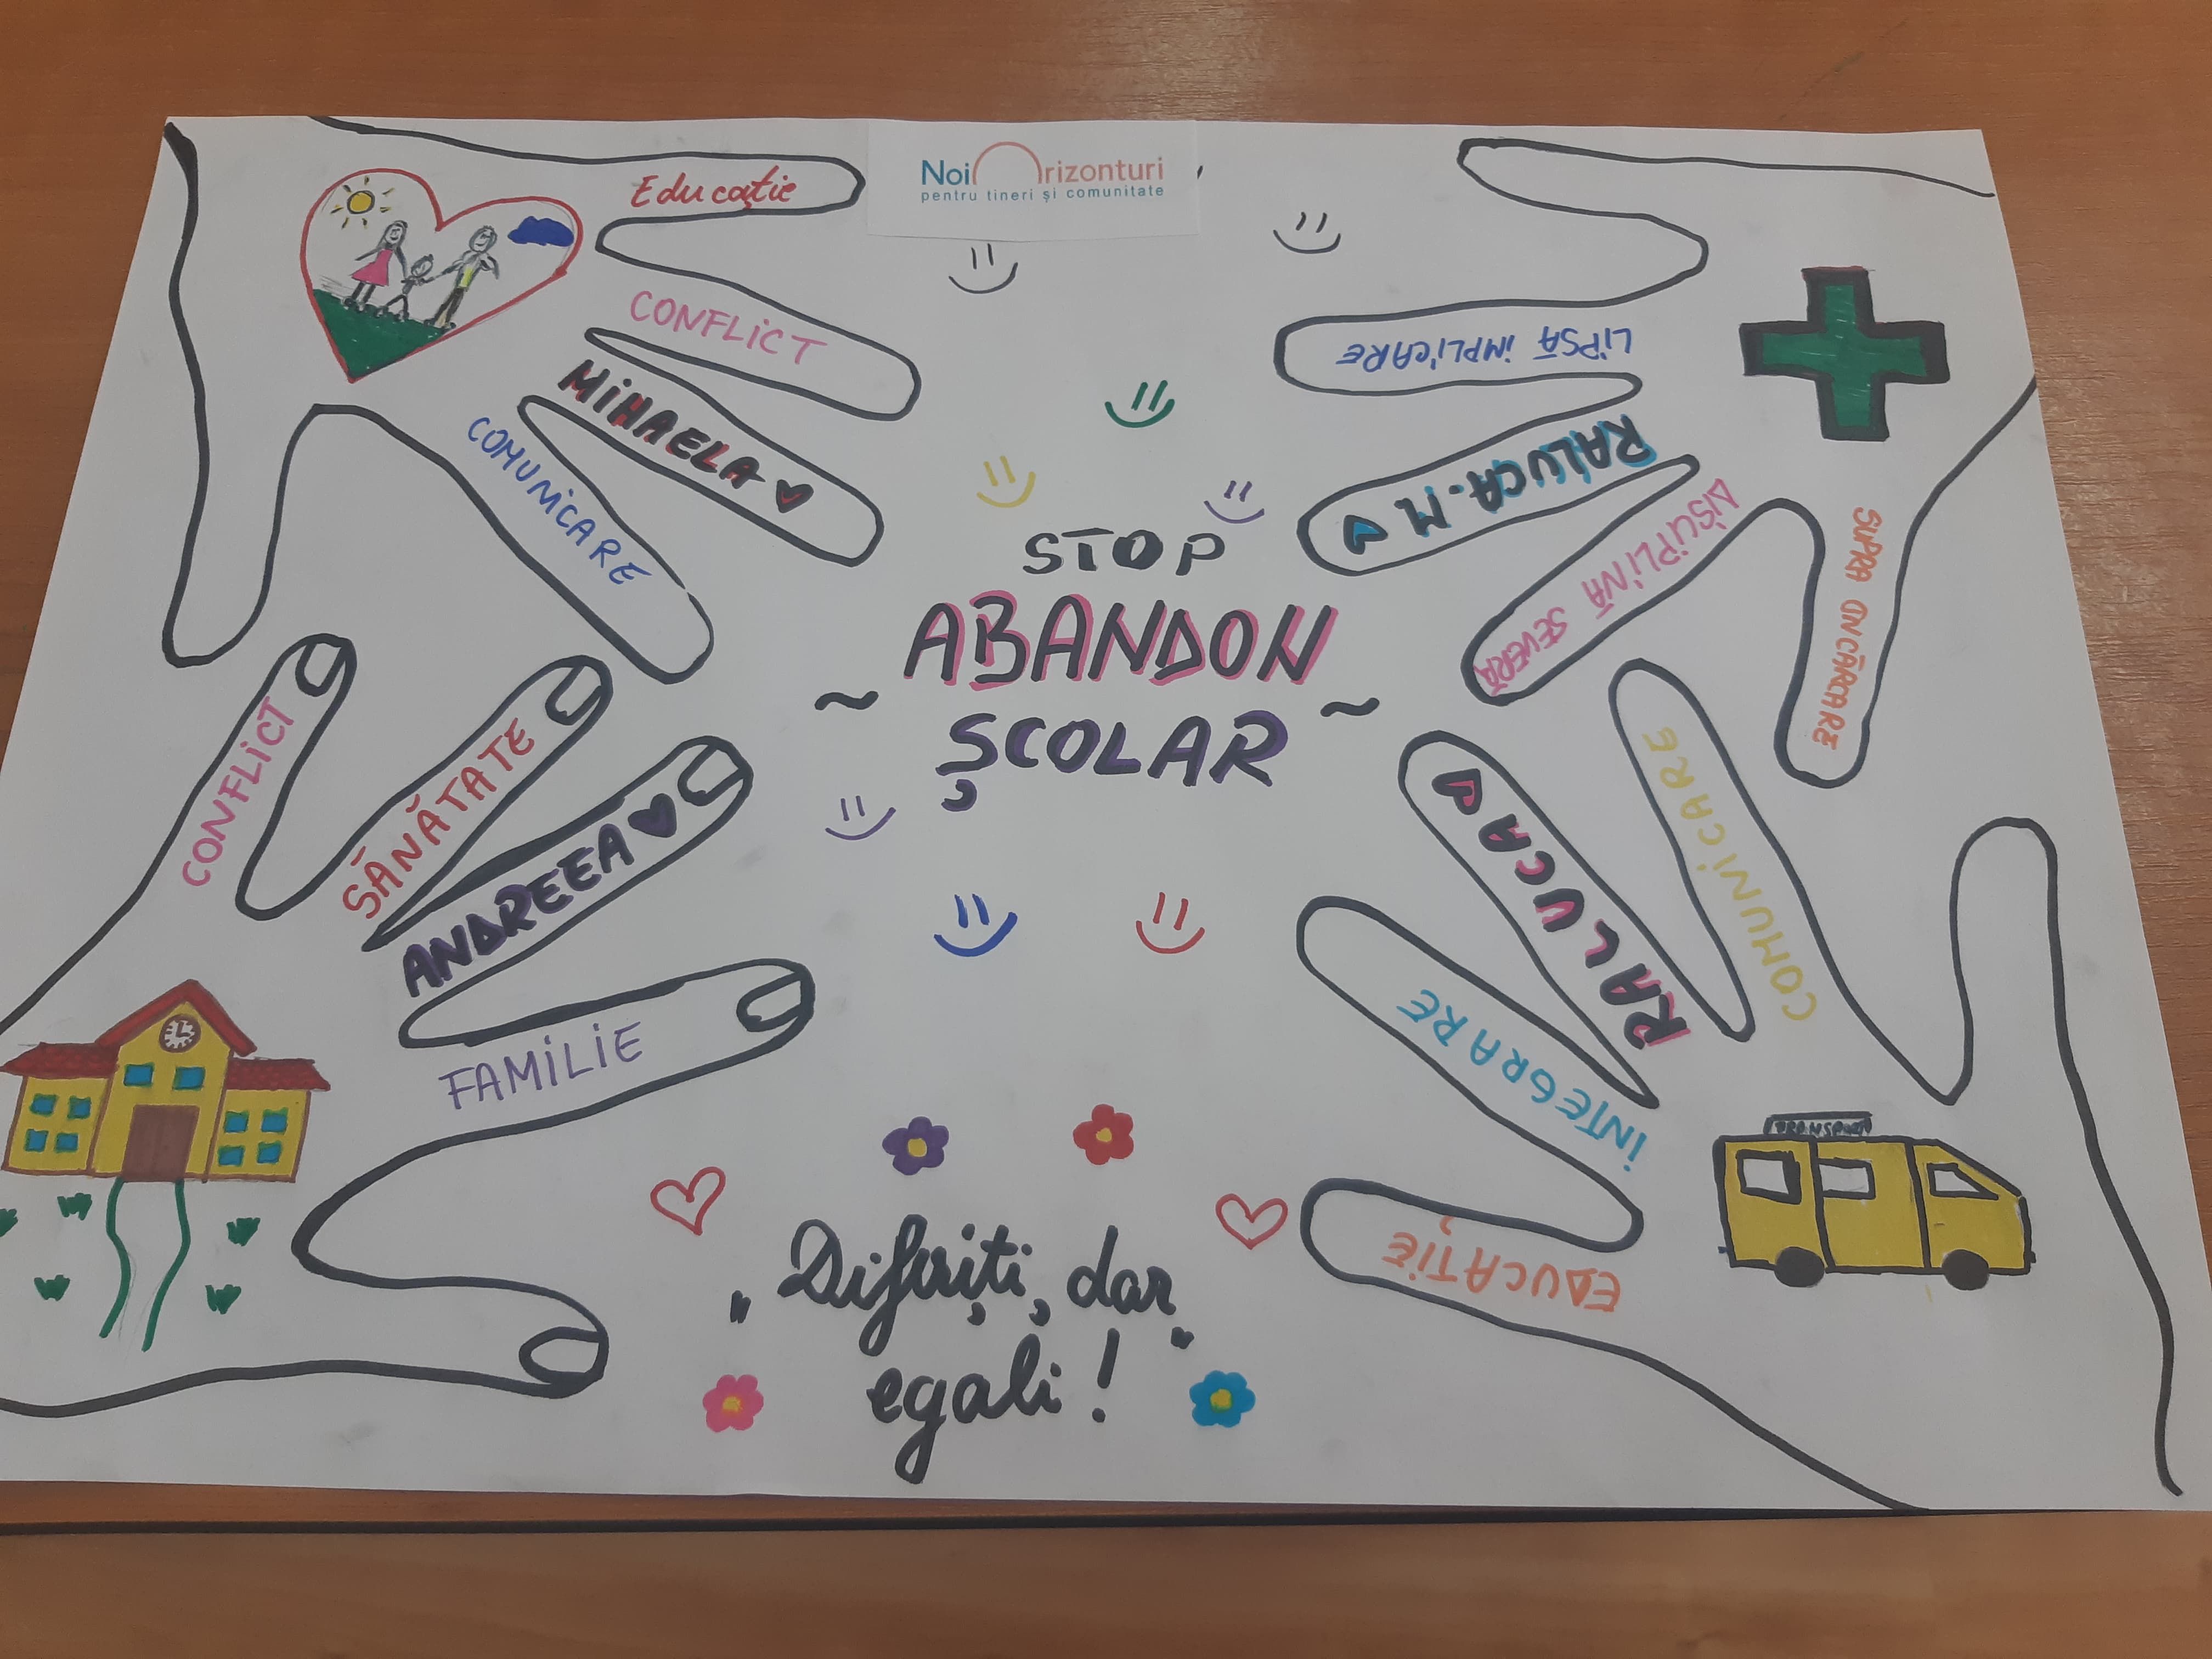 Noi Orizonturi
pentru tineri și comunitate
Educație
CONFLICT
MIHAELA
COMUNICARE
LIPSĂ IMPLICARE
RALUCA.M
DISCIPLINĂ SEVERĂ
SUPRA ÎNCĂRCARE
STOP
ABANDON
~ ȘCOLAR ~
CONFLICT
SĂNĂTATE
ANDREEA
FAMILIE
COMUNICARE
RALUCA
INTEGRARE
EDUCAȚIE
TRANSPORT
„Diferiți, dar
egali!”